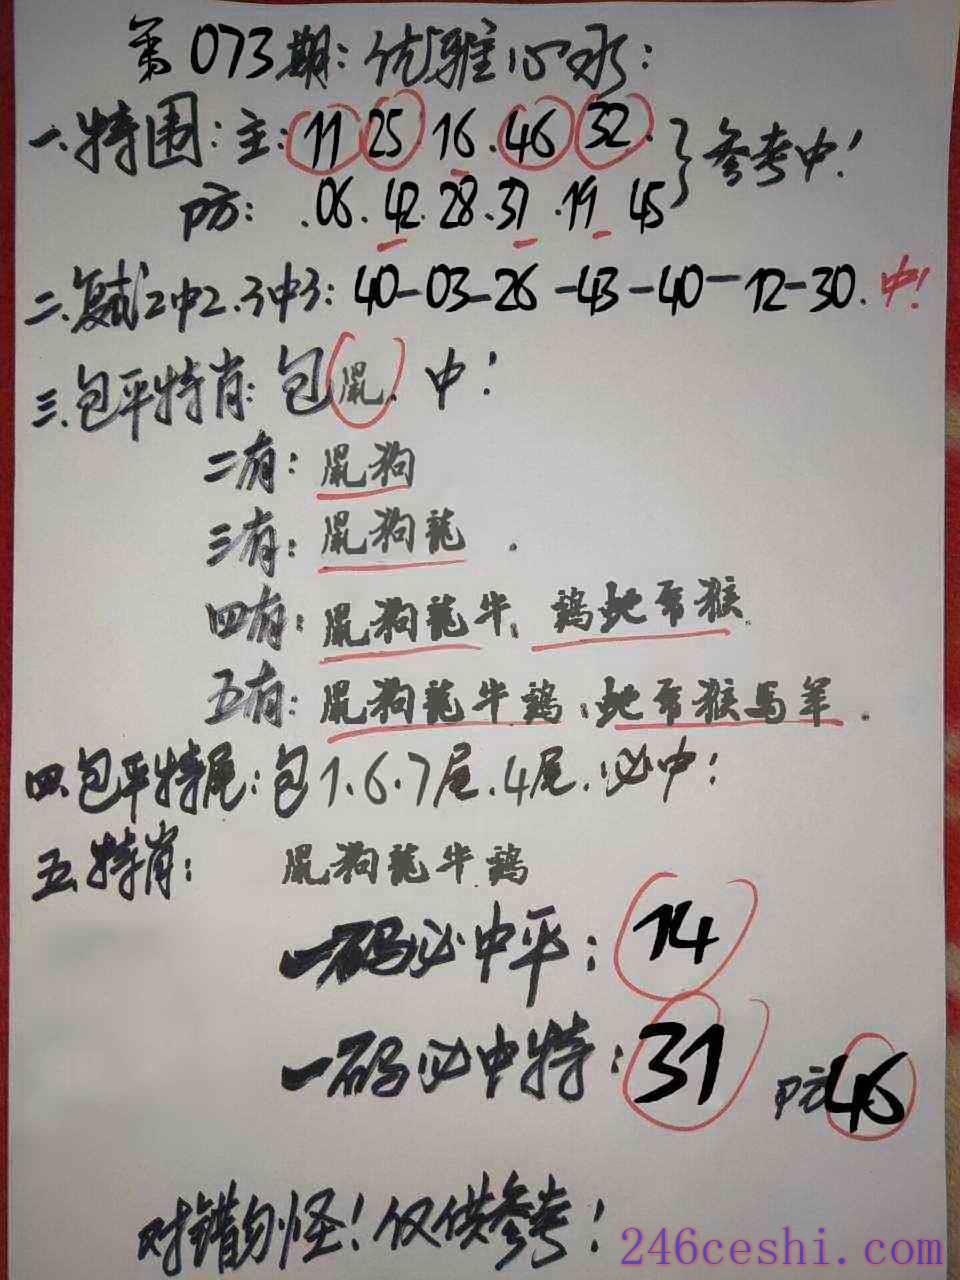 第073期:优雅心水:
一.特围:主:11 25 16.46 32.}参考中!
防:.06.42.28.37.19 45
二.复式2中2.3中3:40-03-26-43-40-12-30.中!
三.包平特肖:包鼠.中!
二有:鼠狗
三有:鼠狗龍.
四有:鼠狗龍牛、鷄蛇帝猴
五有:鼠狗龍牛鷄、蛇帝猴馬羊.
四.包平特尾:包1.6.7尾.4尾.必中!
五.特肖:鼠狗龍牛鷄
一码必中平:14
一码必中特:31 防46
对错勿怪!仅供参考!
246ceshi.com